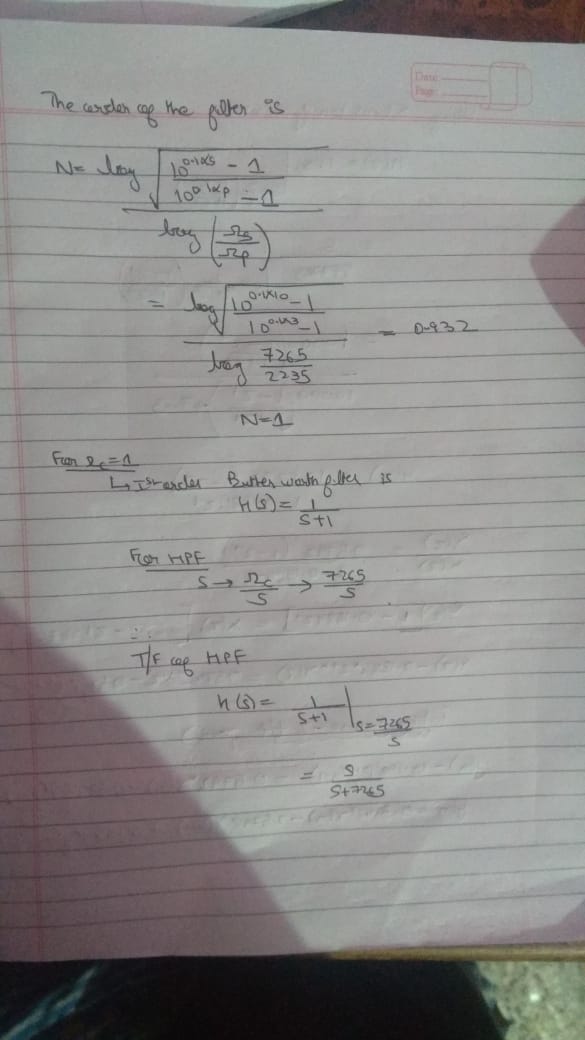 Date:
Page:
The order of the filter is
N= log √((10^0.1αs - 1)/(10^0.1αp - 1))
log (Ωs/Ωp)
= log √((10^0.1×10 - 1)/(10^0.1×3 - 1)) = 0.932
log 7265/2235
N=1
For Ωc=1
↳ Ist order Butter worth filter is
H(s)= 1/(S+1)
For HPF
S → Ωc/S → 7265/S
∴
T/F of HPF
H(s)= 1/(S+1) |s=7265/S
= S/(S+7265)